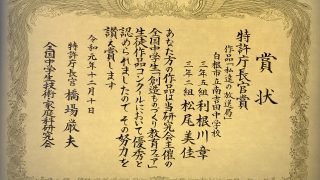 賞状
特許庁長官賞
作品「私達の放送局」
白根市立南吉田中学校
三年五組 利根川章
三年二組 松尾美佳
あなた方の作品は当研究会主催の
全国中学生「創造ものづくり教育フェア」
生徒作品コンクールにおいて優秀と
認められましたのでその努力を
讃え賞します
令和元年十二月十日
特許庁長官 橋場厳夫
全国中学生技術・家庭科研究会